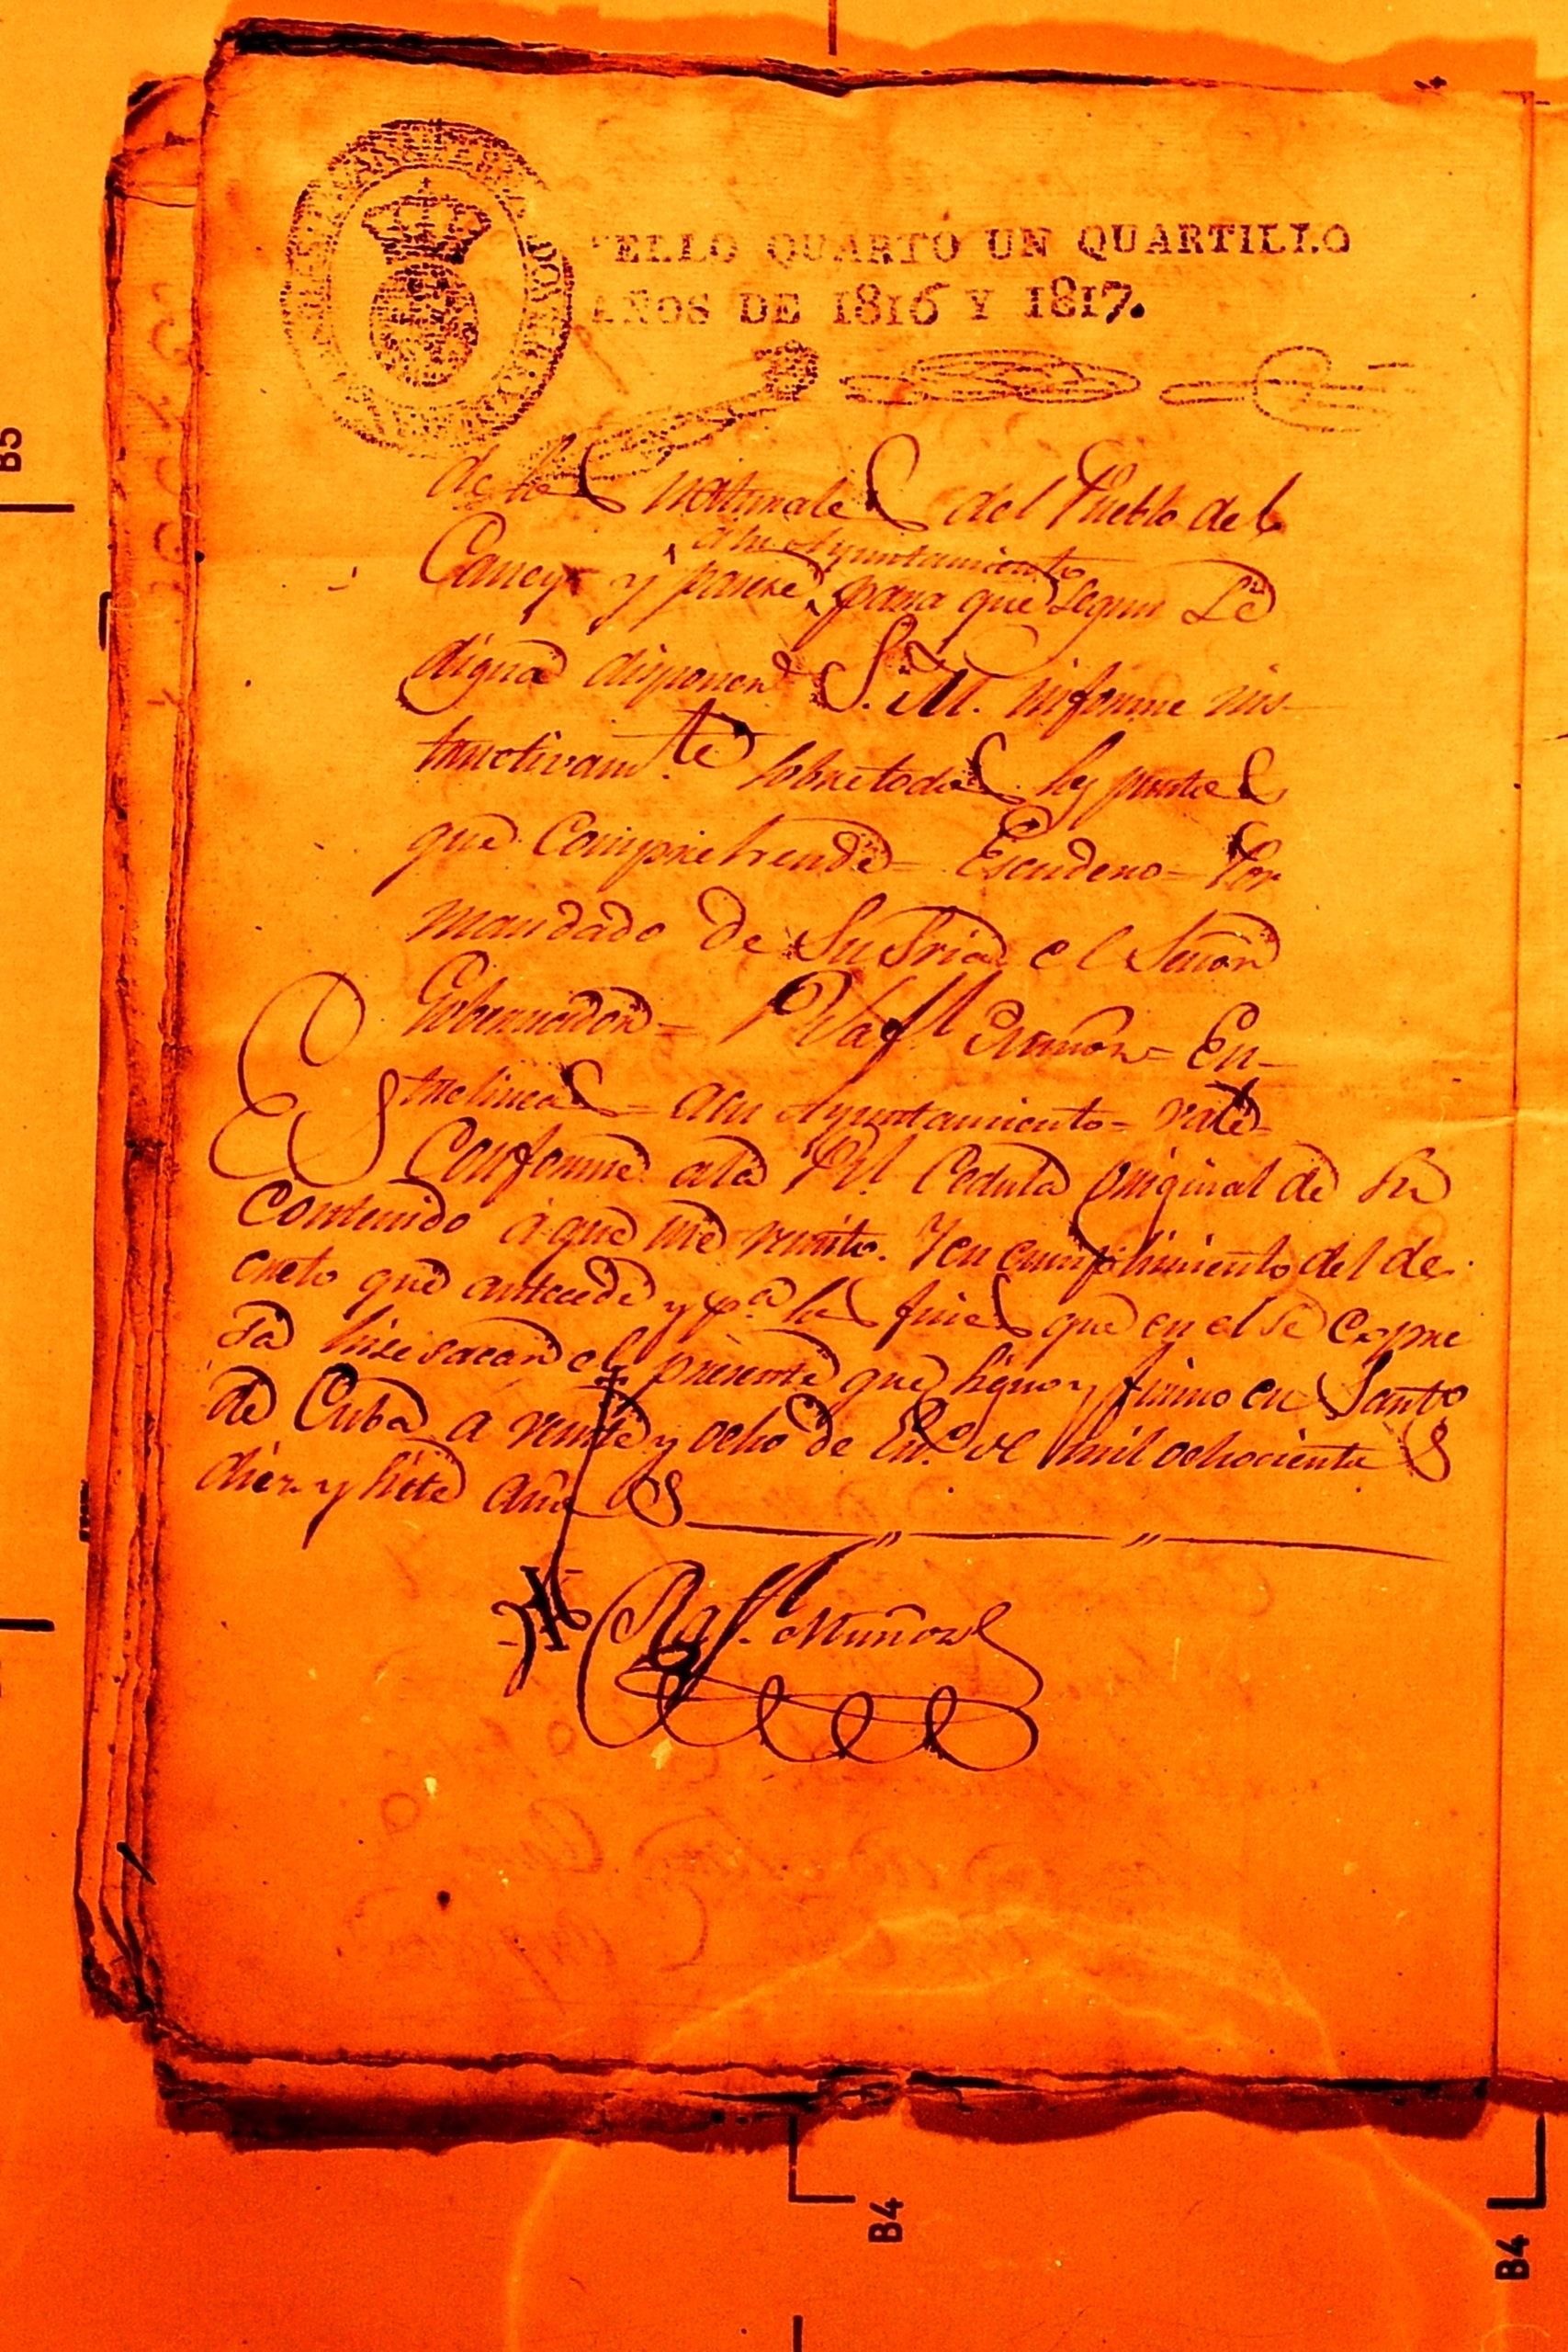 ELLO QUARTO UN QUARTILLO
AÑOS DE 1816 Y 1817.
de los naturales del Pueblo del
a su Ayuntamiento
Caney y pasese para que segun Se
digna disponer S. M. informe ins-
tructivam.te sobre todos los puntos
que comprehende = Escudero = Por
mandado de Su Sria el Señor
Gobernador = Raf.l Muñoz = En-
trelineas = a su Ayuntamiento = vale
Es Conforme a la Rl. Cedula original de su
contenido á que me remito. Y en cumplimiento del de
creto que antecede y p.a los fines que en el se expre
sa hise sacar el presente que signo y firmo en Santo
de Cuba a veinte y ocho de En.o de mil ochocientos
diez y siete años
Raf.l Muñoz
B5
B4
B4